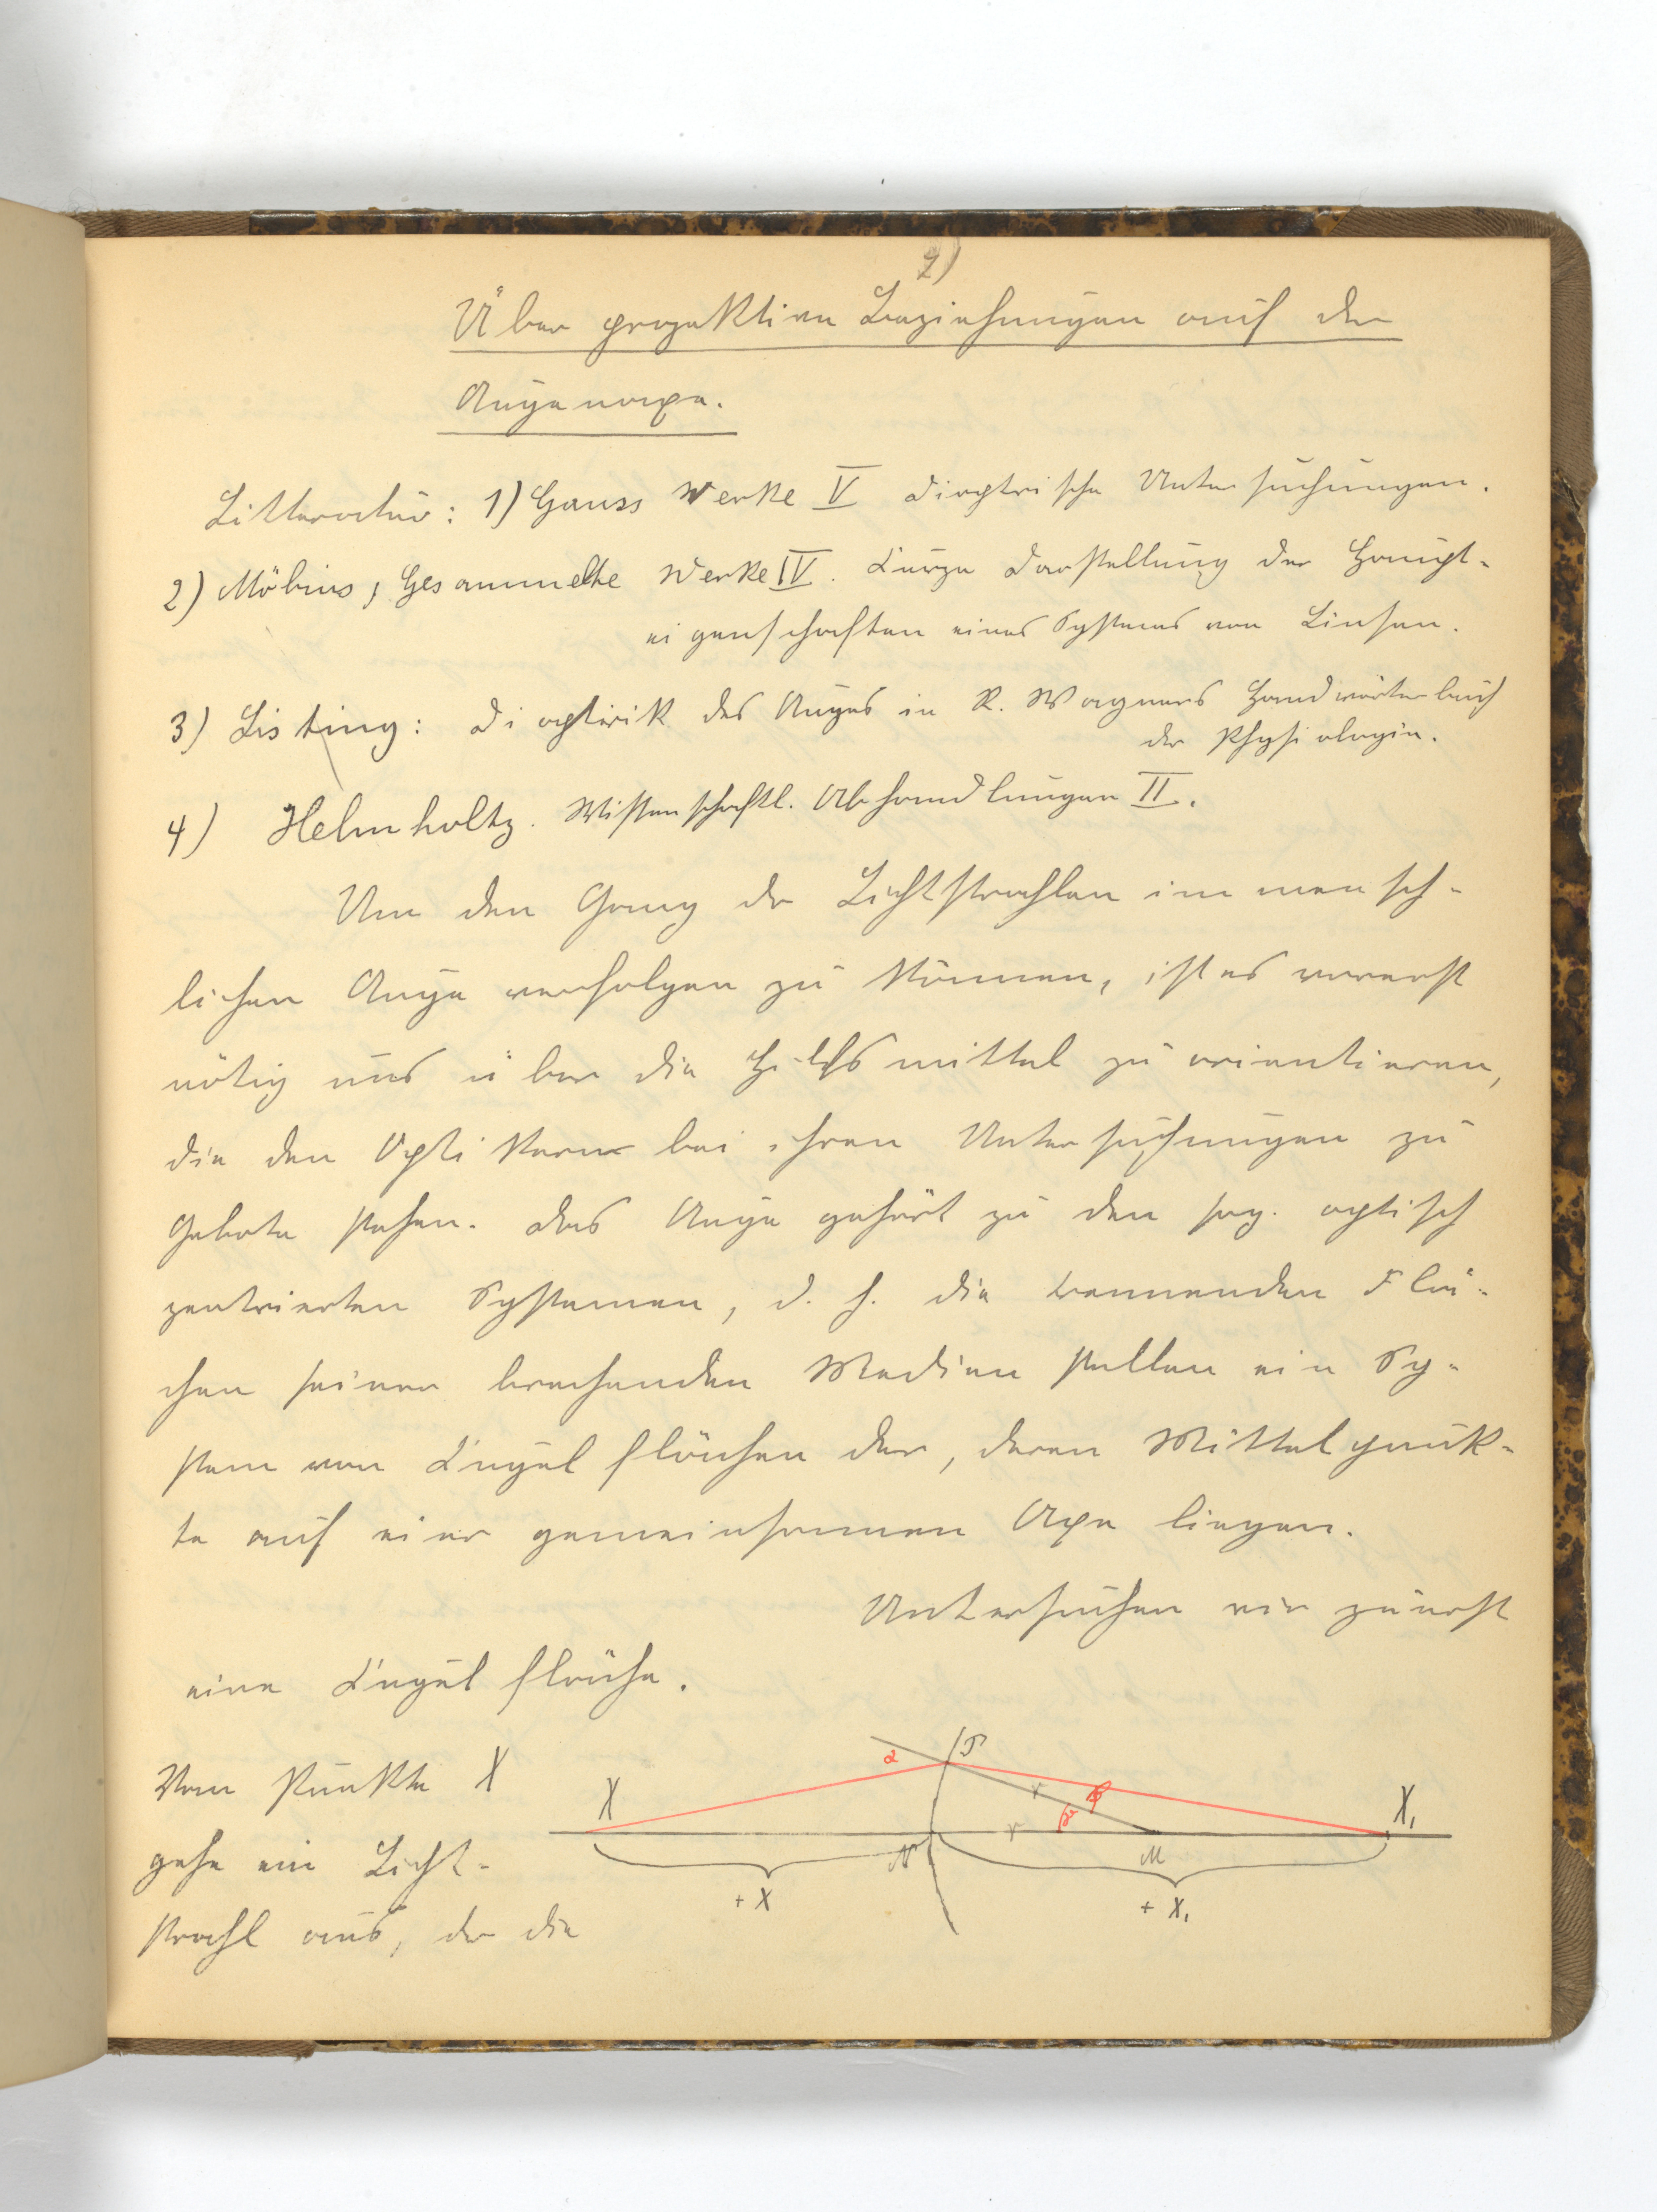 2)
Über projektive Beziehungen auf der
Augenaxe.
Litteratur: 1) Gauss Werke V dioptrische Untersuchungen.
2) Möbius, Gesammelte Werke IV. Kurze Darstellung der Haupt-
eigenschaften eines Systems von Linsen.
3) Listing: Dioptrik des Auges in R. Wagners Handwörterbuch
der Physiologie.
4) Helmholtz. Wissenschaftl. Abhandlungen II.
Um den Gang der Lichtstrahlen im mensch-
lichen Auge verfolgen zu können, ist es vorerst
nötig uns über die Hilfsmittel zu orientieren,
die den Optikern bei ihren Untersuchungen zu
Gebote stehen. Das Auge gehört zu den sog. optisch
zentrierten Systemen, d. h. die trennenden Flä-
chen seiner brechenden Medien stellen ein Sy-
stem von Kugelflächen dar, deren Mittelpunk-
te auf einer gemeinsamen Axe liegen.
Untersuchen wir zuerst
eine Kugelfläche.
Vom Punkte X
gehe ein Licht-
strahl aus, der die
α P
X r β X₁
r
N M
+ X + X₁